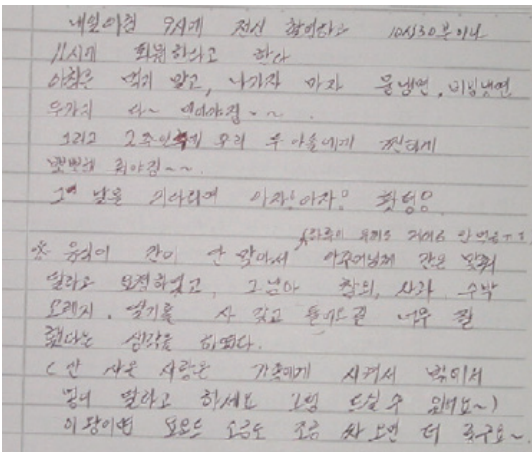 내일아침 9시에 전신 촬영하고 10시30분이나
11시에 퇴원하라고 한다
아침은 먹지 말고, 나가자 마자 물냉면, 비빔냉면
두가지 다~ 먹어야징~~.
그리고 2주인 우리 두 아들에게 찐하게
뽀뽀해 줘야징~~
그 날을 기다리며 아자! 아자! 홧팅!
※ 음식이 간이 안 맞아서 간은 맞춰
달라고 요청하였고, 그나마 참외, 사과, 수박
오렌지, 딸기를 사 갖고 들어오길 너무 잘
했다는 생각을 하였다.
(안 사온 사람은 가족에게 시켜서 넣어
달라고 하세요 드실 수 있어요~)
이왕이면 소금도 조금 싸오면 더 좋구요~